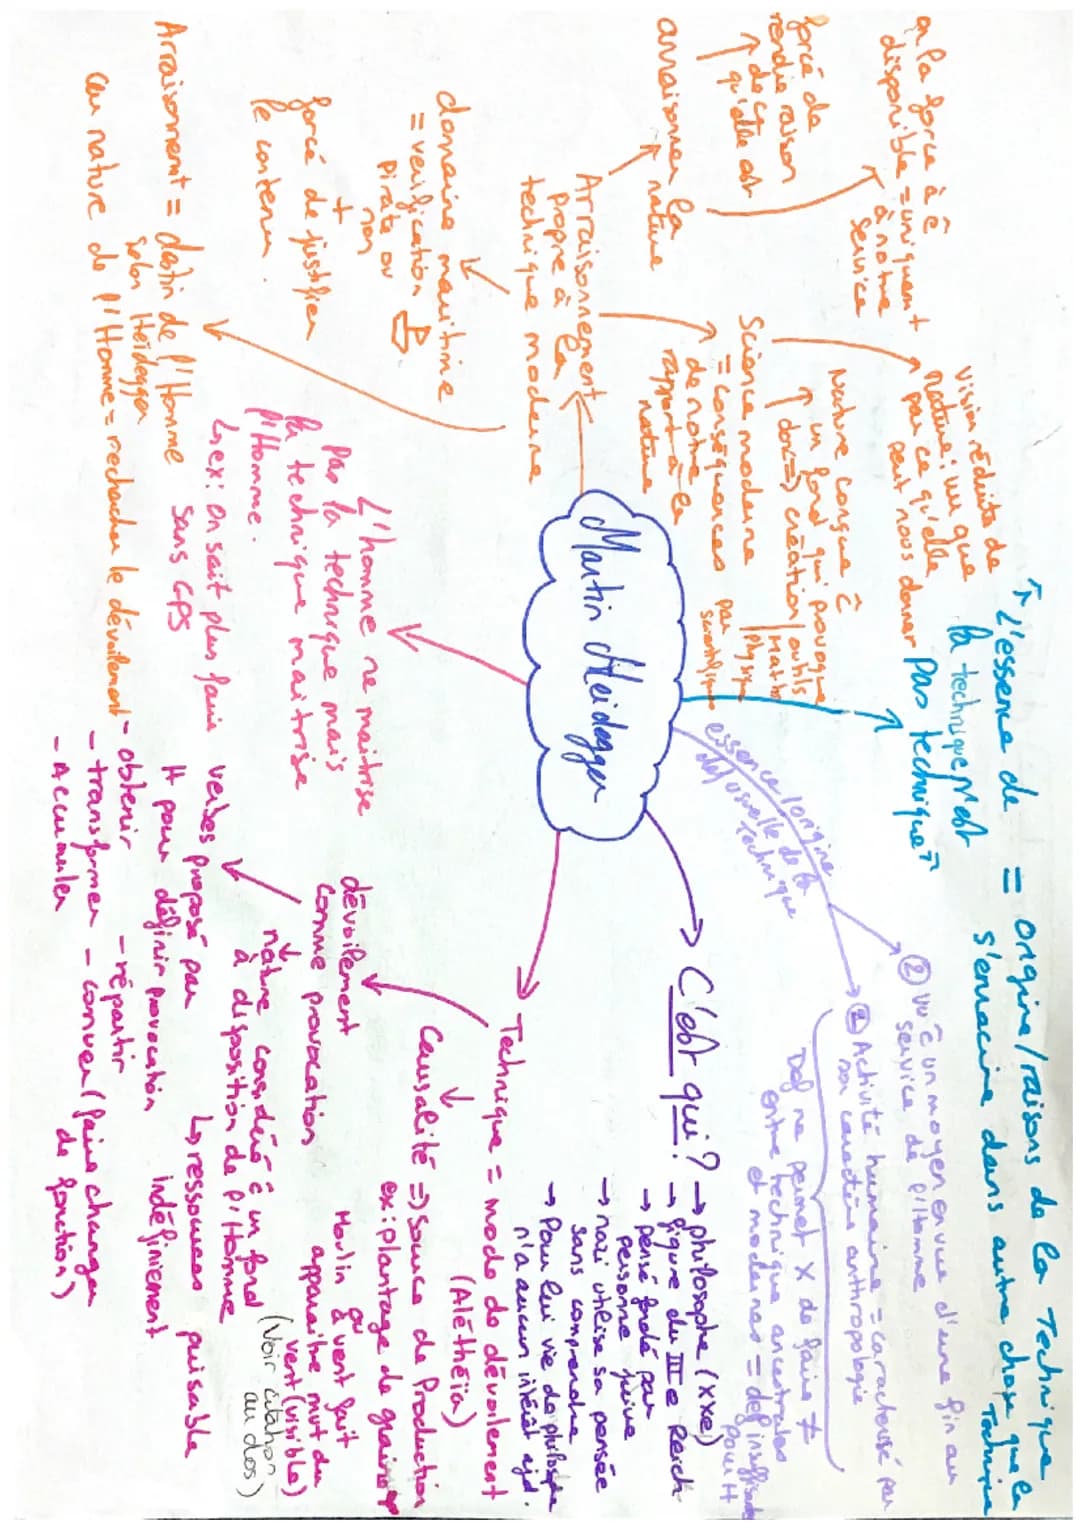 Martin Heidegger
C'est qui ?
→ philosophe (XXe)
→ figure du IIIe Reich
→ pensé fondé par
personne juive
→ nazi utilise sa pensée
sans comprendre
→ Pour lui vie de philosophe
n'a aucun intérêt
↑ L'essence de
la technique n'est
pas technique
= origine/raisons de la Technique
s'enracine dans autre chose que la
Technique
essence/origine
def usuelle de la
technique
② vu ê un moyen en vue d'une fin au
service de l'Homme
① Activité humaine = caractérisé par
son caractère anthropologie
Def ne permet X de faire ≠
entre technique ancestrales
et modernes = def insuffisante
pour H
Technique = mode de dévoilement
(Aléthéia)
Causalité => Source de Production
ex: plantage de grains
Moulin à vent fait
apparaitre mvt du
vent (visible)
(Voir citation
au dos)
dévoilement
comme provocation
nature considéré ê un fond
à disposition de l'Homme
↳ ressources puisable
indéfiniement
verbes proposé par
H pour définir provocation
- obtenir
- transformer
- Accumuler
- répartir
- convuer (faire changer
de fonction)
L'homme ne maitrise
pas la technique mais
la technique maitrise
l'Homme.
↳ ex: On sait plus faire
sans GPS
Arraisonnement
propre à la
technique moderne
arraisonner la
nature
forcé de
rendre raison
de ce
qu'elle est
la force à ê
disponible = uniquement
à notre
service
Science moderne
= conséquences
de notre
rapport à la
nature
Nature conçue ê
un fond qui provoque
donc => création outils
Maths
Physique
par
scientifiques
Vision réduite de
nature: vu que
par ce qu'elle
peut nous donner
domaine maritime
= vérification
pirate ou
non
+
forcé de justifier
le contenu.
Arraisonnement = destin de l'Homme
selon Heidegger
car nature de l'Homme = rechercher le dévoilement